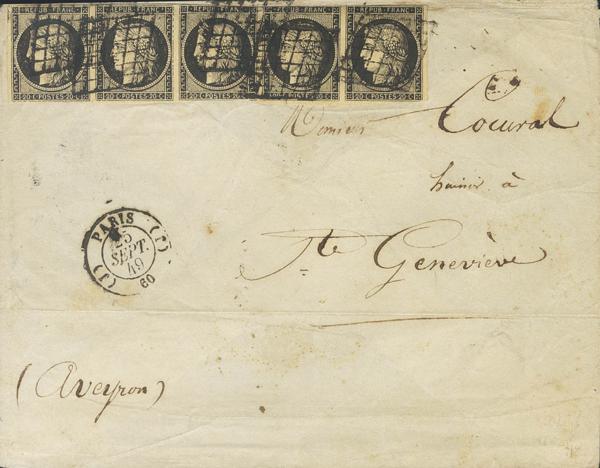 REPUB. FRANC. REPUB. FRANC. REPUB. FRANC. REPUB. FRANC. REPUB. FRANC.
20 C POSTES 20 C 20 C POSTES 20 C 20 C POSTES 20 C 20 C POSTES 20 C 20 C POSTES 20 C
Monsieur Cocural
à
Ste Geneviève
PARIS (J)
25
SEPT.
49
(J) 60
(Aveyron)